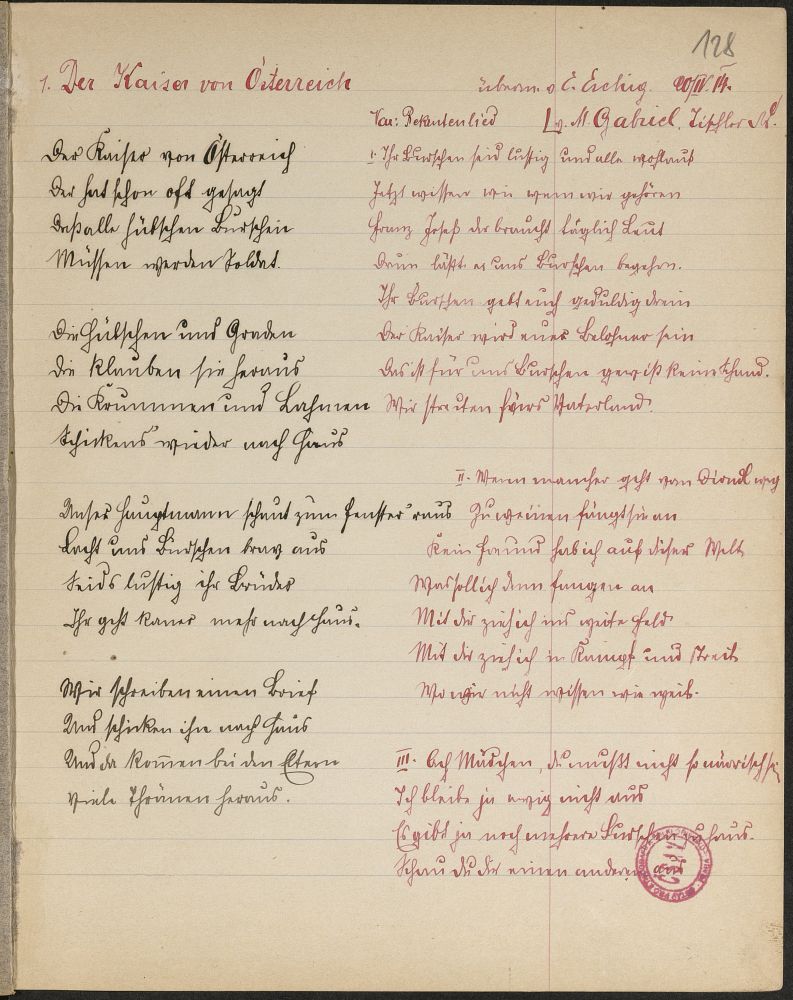 128
1. Der Kaiser von Österreich
überm. v. E. Eichig. 20/IV. 14.
Var: Rekrutenlied
v. M. Gabriel, Tischler
Der Kaiser von Österreich
Der hat schon oft gesagt
Daß alle hübschen Burschen
Müssen werden Soldat.
Die hübschen und Graden
Die klauben sie heraus
Die Krummen und Lahmen
Schickens wieder nach Haus
Unser Hauptmann schaut zum Fenster raus
Lacht uns Burschen brav aus
Seids lustig ihr Brüder
Ihr geht kaner mehr nach Haus.
Wir schreiben einen Brief
Und schicken ihn nach Haus
Und da kom̅en bei den Eltern
Viele Thränen heraus.
I. Ihr Burschen seid lustig und alle wohlauf
Jetzt wissen wir wem wir gehören
Franz Josef der braucht täglich Leut
Drum läßt er uns Burschen begehrn.
Ihr Burschen gebt euch geduldig drein
Der Kaiser wird euer Belohner sein
Das ist für uns Burschen gewiß keine Schand.
Wir streiten fürs Vaterland.
II. Wenn mancher geht vom Dirndl weg
Zu weinen fängt sie an
Kein Freund hab ich auf dieser Welt
Was soll ich denn fangen an
Mit dir zieh ich ins weite Feld
Mit dir zieh ich in Kampf und Streit
Wo wir nicht wissen wie weit.
III. Ach Mädchen, du mußt nicht so närrisch sei
Ich bleibe ja ewig nicht aus
Es gibt ja noch mehrere Burschen z Haus.
Schau du dir einen anderen aus